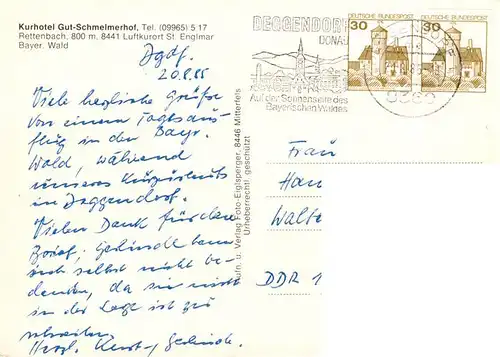 Kurhotel Gut-Schmelmerhof, Tel. (09965) 5 17
Rettenbach, 800 m. 8441 Luftkurort St. Englmar
Bayer. Wald
Dgdf.
20.8.85
Viele herzliche Grüße
von einem Tagesaus-
flug in den Bayr.
Wald, während
unseres Kurzurlaubs
in Deggendorf.
Vielen Dank für den
Brief; Gerlinde kann
sich selbst nicht be-
danken, da sie nicht
in der Lage ist zu
schreiben.
Herzl. Gerlinde.
Aufn. u. Verlag Foto-Eiglsperger, 8446 Mitterfels
Urheberrechtl. geschützt
DEGGENDORF
DONAU
Auf der Sonnenseite des
Bayerischen Waldes
DEUTSCHE BUNDESPOST
30
DEUTSCHE BUNDESPOST
30
8360
Frau
Han
Walte
DDR 1